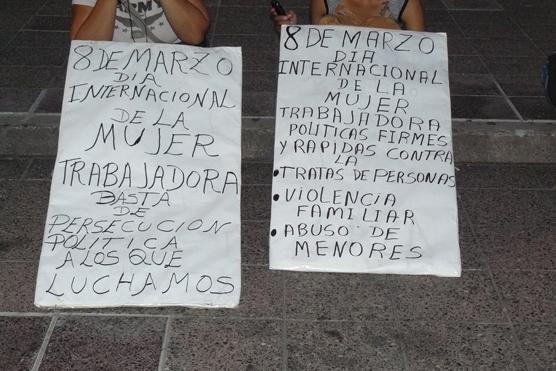 8 DE MARZO
DIA
INTERNACIONAL
DE LA
MUJER
TRABAJADORA
BASTA
DE
PERSECUCION
POLITICA
A LOS QUE
LUCHAMOS
8 DE MARZO
DIA
INTERNACIONAL
DE LA
MUJER
TRABAJADORA
POLITICAS FIRMES
Y RAPIDAS CONTRA
LA
• TRATAS DE PERSONAS
• VIOLENCIA
FAMILIAR
• ABUSO DE
MENORES